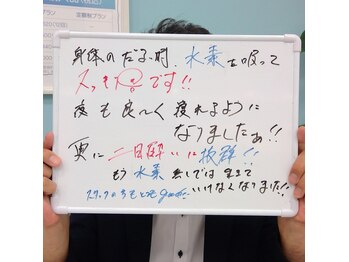 定額制プラン
身体のだるい時、水素を吸って
スッキリです!!
夜も良〜く寝れるように
なりましたぁ!!
更に二日酔いに抜群!!
もう水素無しでは生きて
いけなくなりました!!
スタッフのちもとってもgood!!